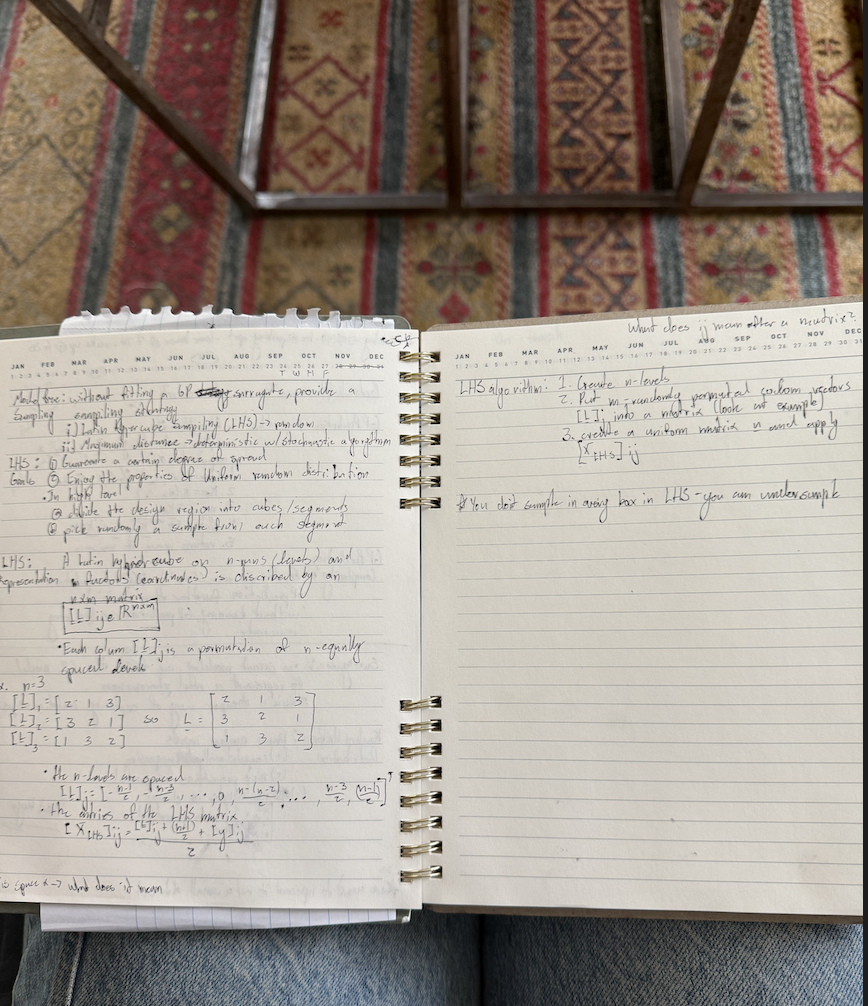 JAN FEB MAR APR MAY JUN JUL AUG SEP OCT NOV DEC
1 2 3 4 5 6 7 8 9 10 11 12 13 14 15 16 17 18 19 20 21 22 23 24 25 26 27 28 29 30 31
T W H F
without fitting a GP surrogate, provide a
Sampling sampling strategy
i) Latin Hypercube Sampling (LHS) → random
ii) Maximum distance → deterministic w/ stochastic algorithm
LHS: ① Guarantee a certain degree of spread
Goals ② Enjoy the properties of Uniform random distribution
• In high level
① divide the design region into cubes/segments
② pick randomly a sample from each segment
LHS: A Latin hypercube on n-runs (levels) and
representation factors (coordinates) is discribed by an
nxm matrix
[L]ij ∈ R^nxm
• Each colum [L]j is a permutation of n-equally
spaced levels
n=3
[L]1 = [2 1 3]
[L]2 = [3 2 1] so L = [2 1 3
3 2 1
1 3 2]
[L]3 = [1 3 2]
• the n-levels are spaced
[L]j = [-(n-1)/2, -(n-3)/2, ..., 0, (n-(n-2))/2, ..., (n-3)/2, (n-1)/2]^T
• the entries of the LHS matrix
[X_LHS]ij = ([L]ij + (n-1)/2 + [y]ij)/2
space → what does it mean
What does ij mean after a matrix?
JAN FEB MAR APR MAY JUN JUL AUG SEP OCT NOV DEC
1 2 3 4 5 6 7 8 9 10 11 12 13 14 15 16 17 18 19 20 21 22 23 24 25 26 27 28 29 30 31
LHS algorithm: 1. Create n-levels
2. Put m-randomly permuted column vectors
[L]j into a matrix (look at example)
3. create a uniform matrix n and apply
[X_LHS]ij
* You don't sample in every box in LHS - you am undersample